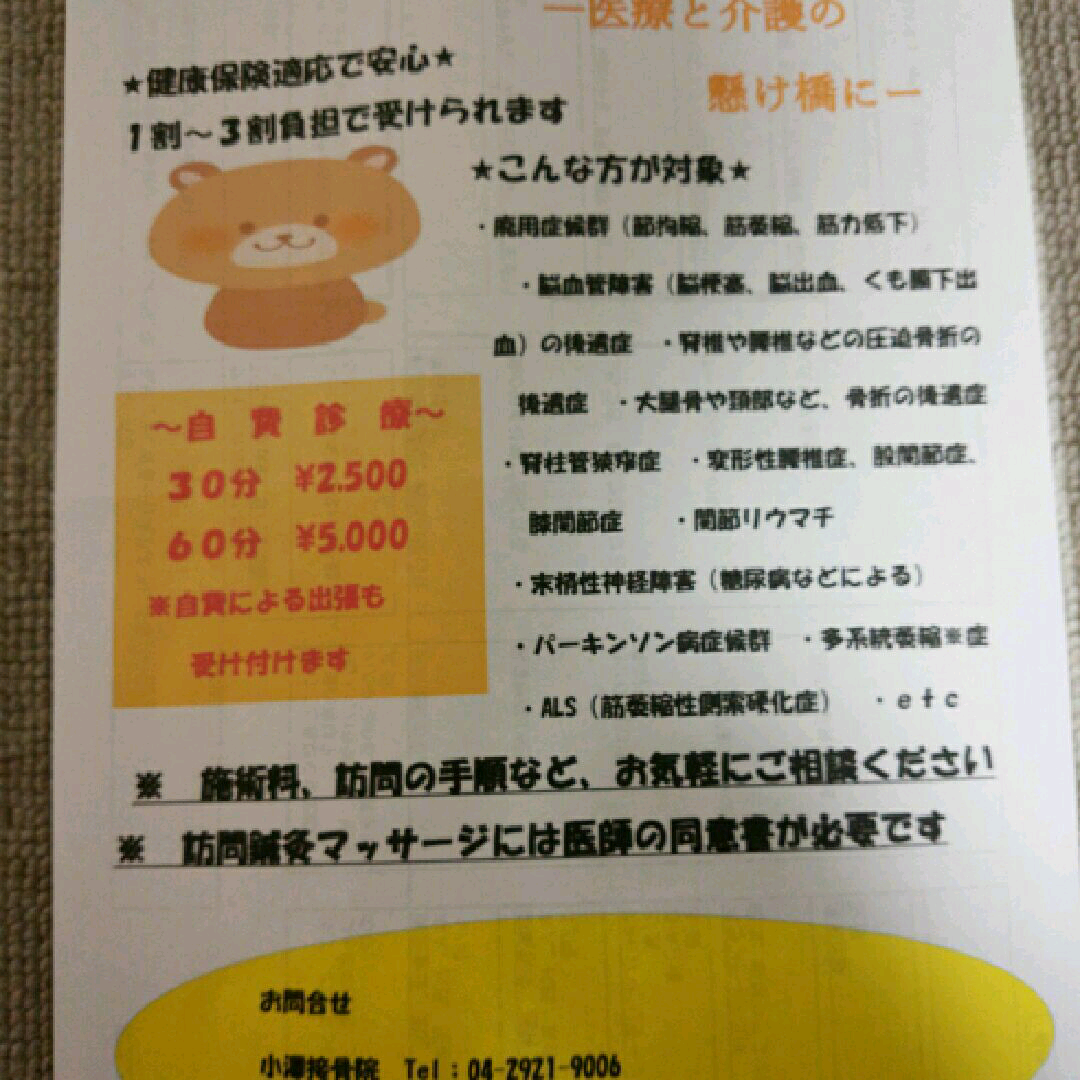 ー医療と介護の
懸け橋にー
★健康保険適応で安心★
1割～3割負担で受けられます
★こんな方が対象★
・廃用症候群（節拘縮、筋萎縮、筋力低下）
・脳血管障害（脳梗塞、脳出血、くも膜下出
血）の後遺症　・脊椎や腰椎などの圧迫骨折の
後遺症　・大腿骨や頚部など、骨折の後遺症
・脊柱管狭窄症　・変形性腰椎症、股関節症、
膝関節症　　・関節リウマチ
・末梢性神経障害（糖尿病などによる）
・パーキンソン病症候群　・多系統萎縮※症
・ALS（筋萎縮性側索硬化症）　・etc
～自 費 診 療～
30分　¥2.500
60分　¥5.000
※自費による出張も
受け付けます
※　施術料、訪問の手順など、お気軽にご相談ください
※　訪問鍼灸マッサージには医師の同意書が必要です
お問合せ
小澤接骨院　Tel：04-2921-9006